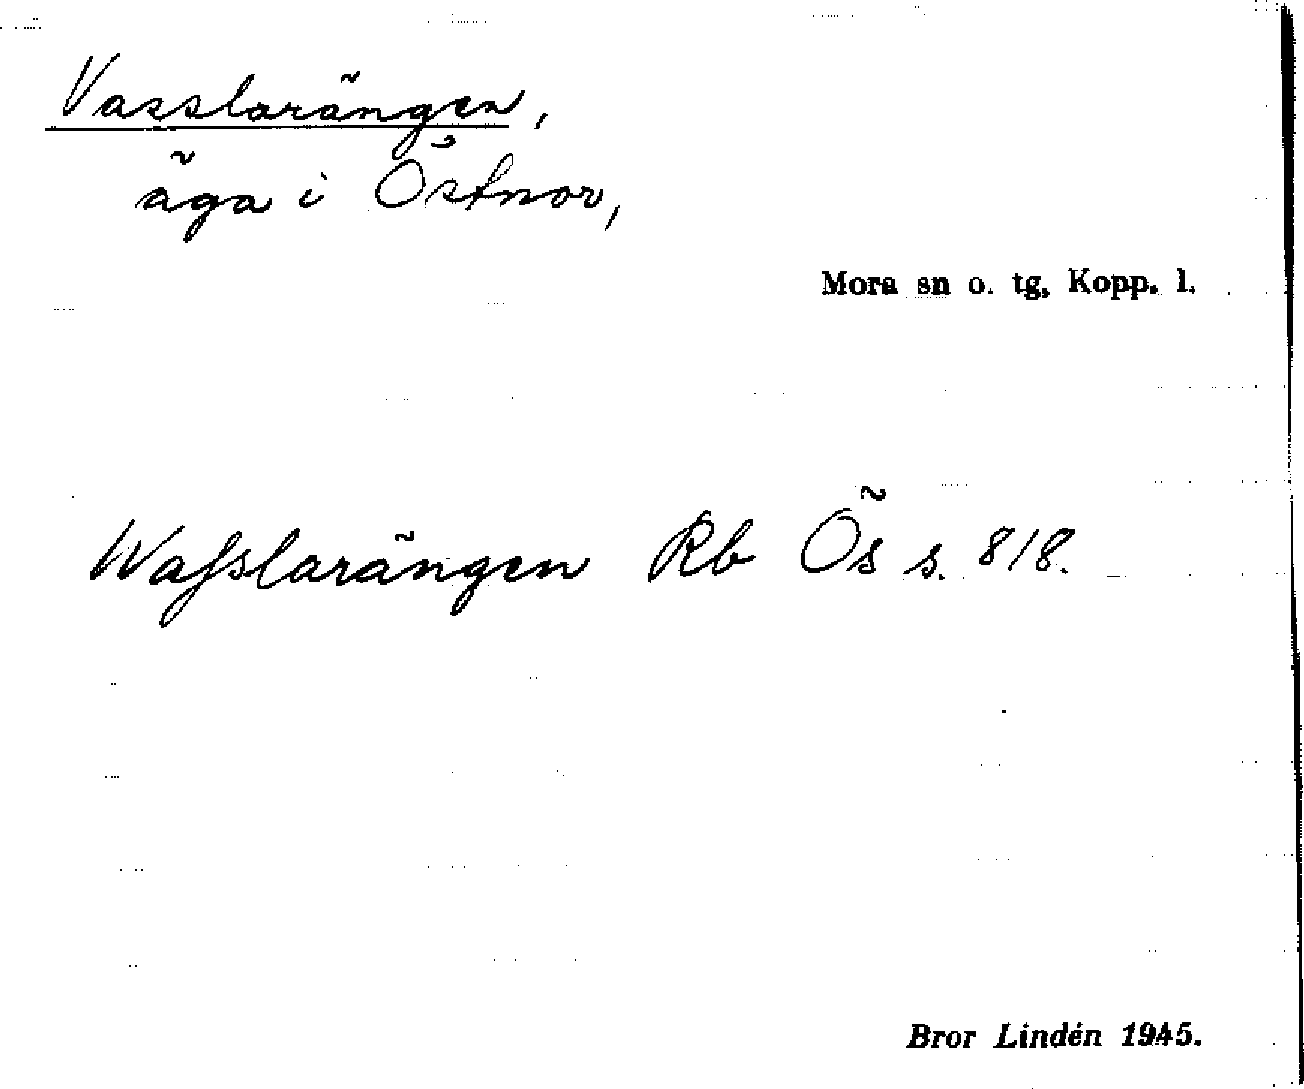 Vasslarängen,
äga i Östnor,
Mora sn o. tg, Kopp. l.
Wasslarängen Rb Ös s. 818.
Bror Lindén 1945.